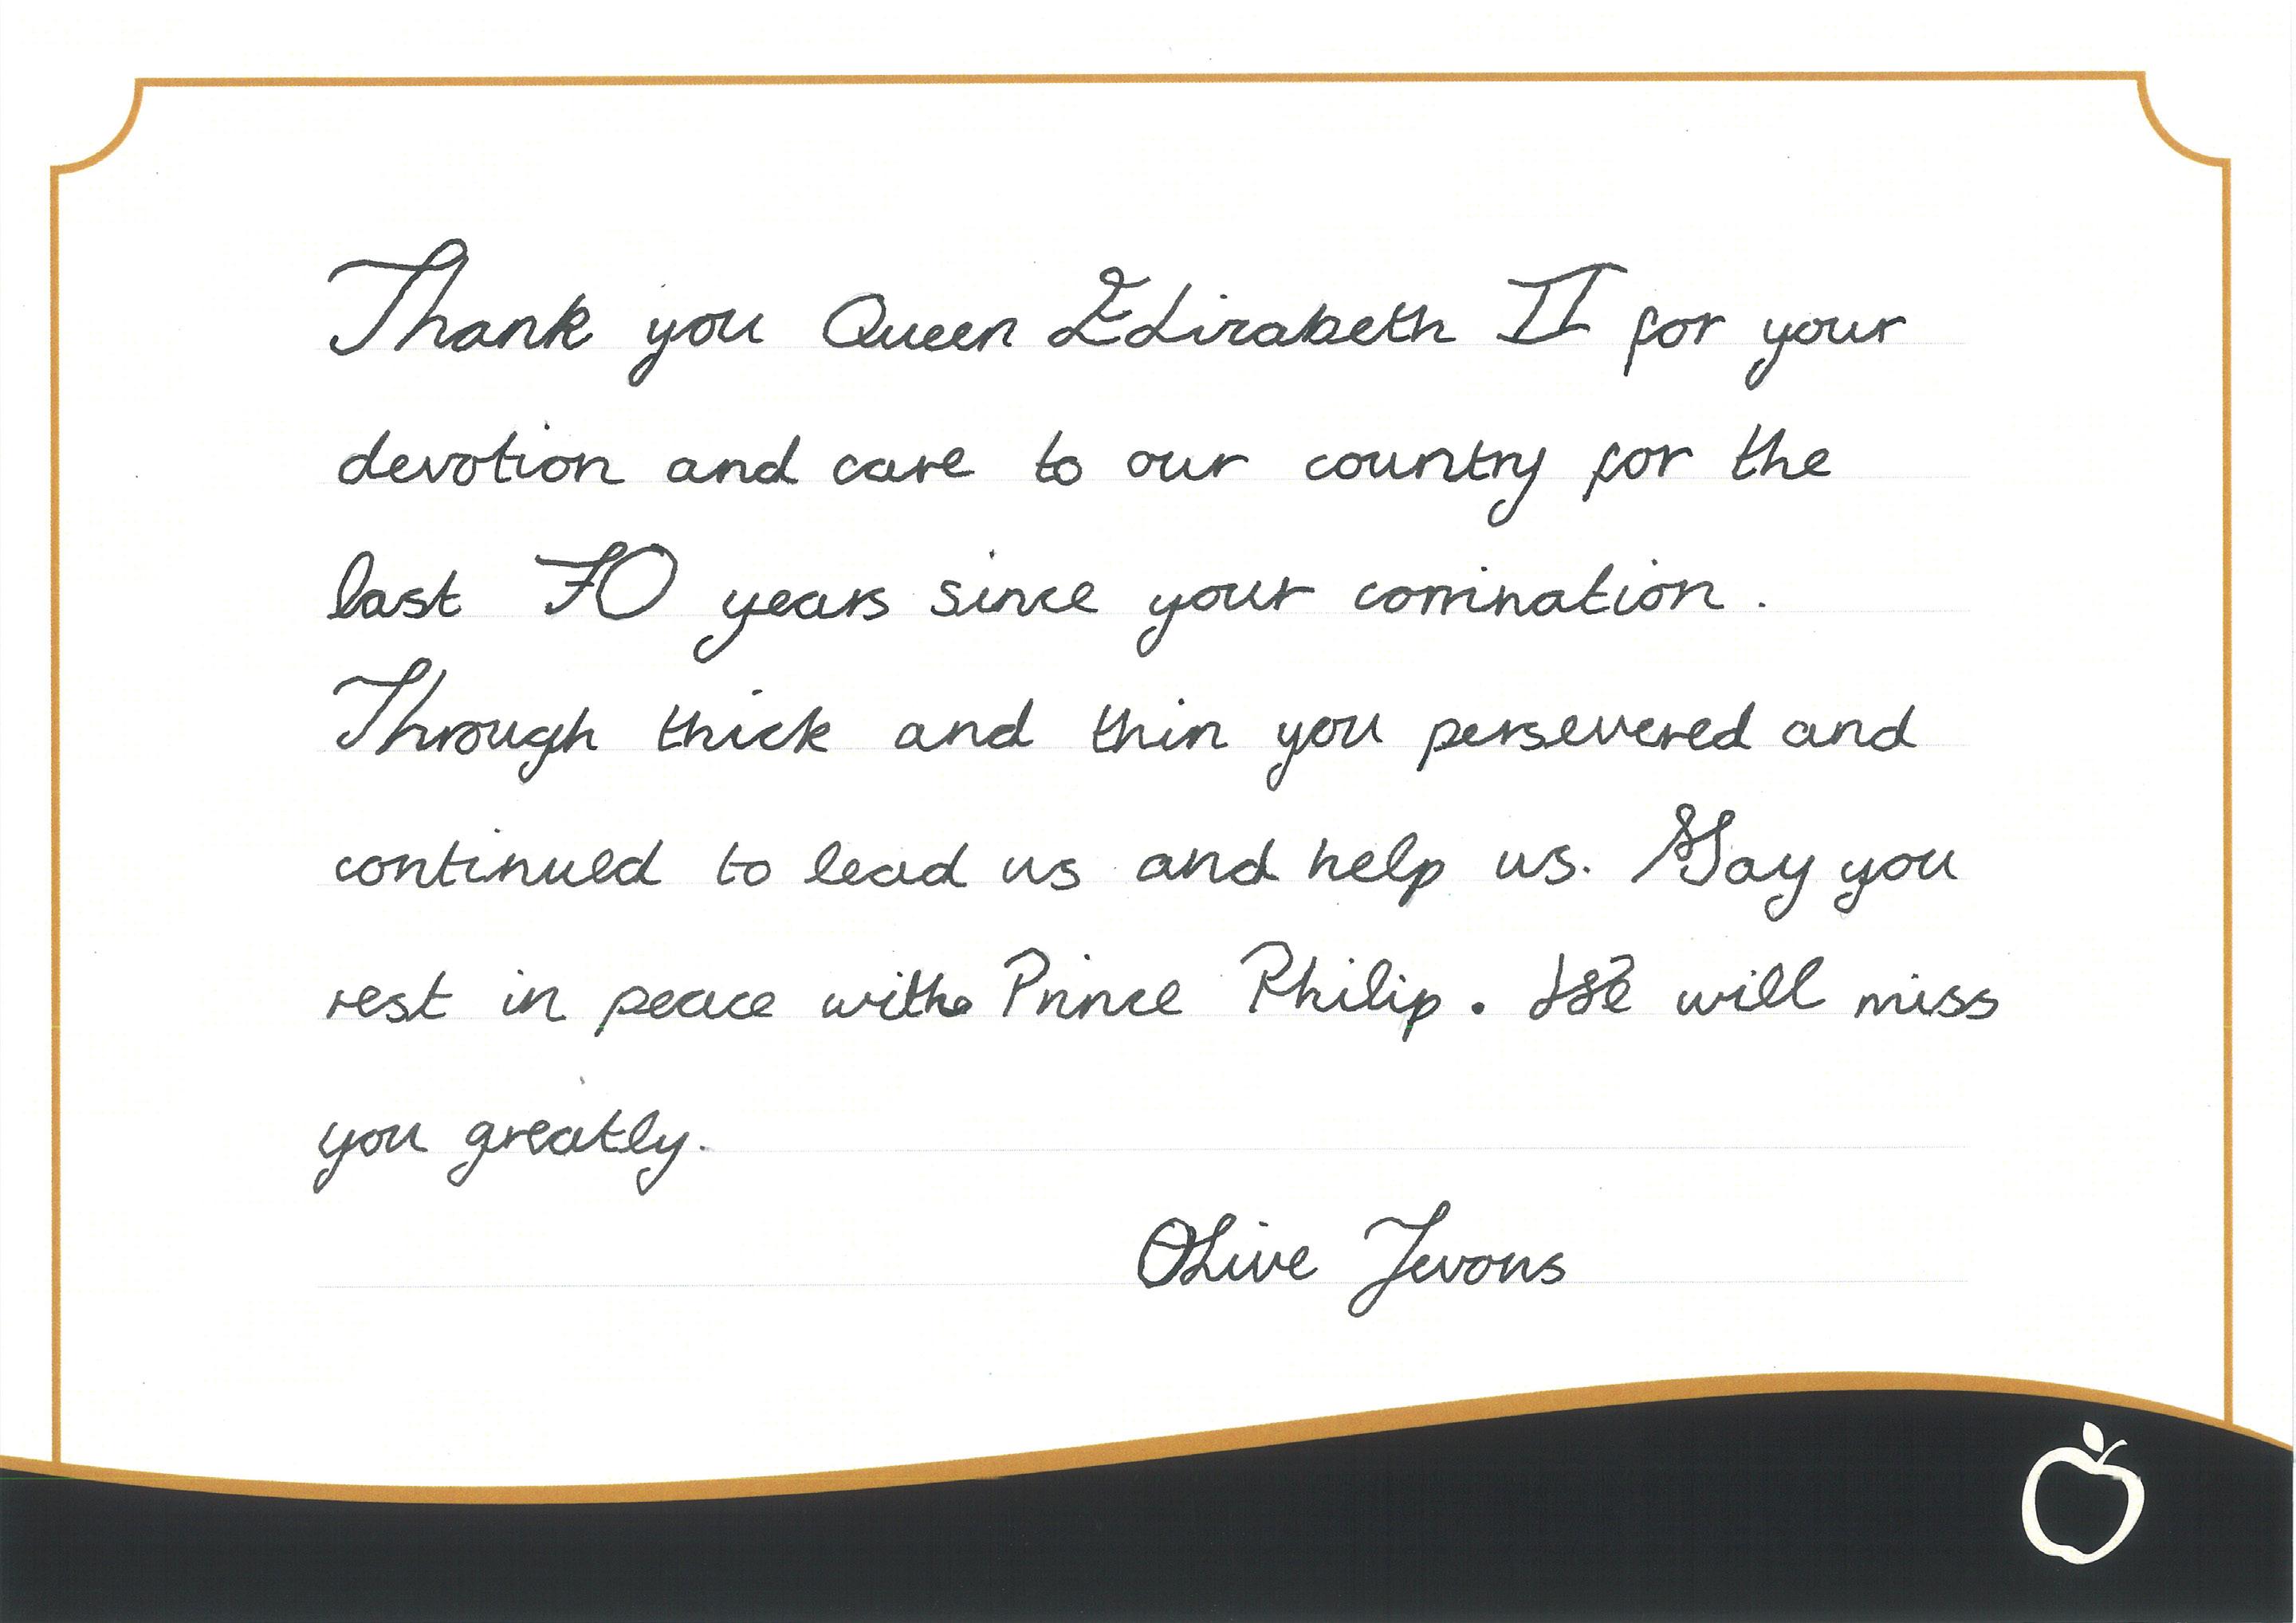 Thank you Queen Elizabeth II for your
devotion and care to our country for the
last 70 years since your corrination.
Through thick and thin you persevered and
continued to lead us and help us. May you
rest in peace with Prince Philip. We will miss
you greatly.
Olive Jevons